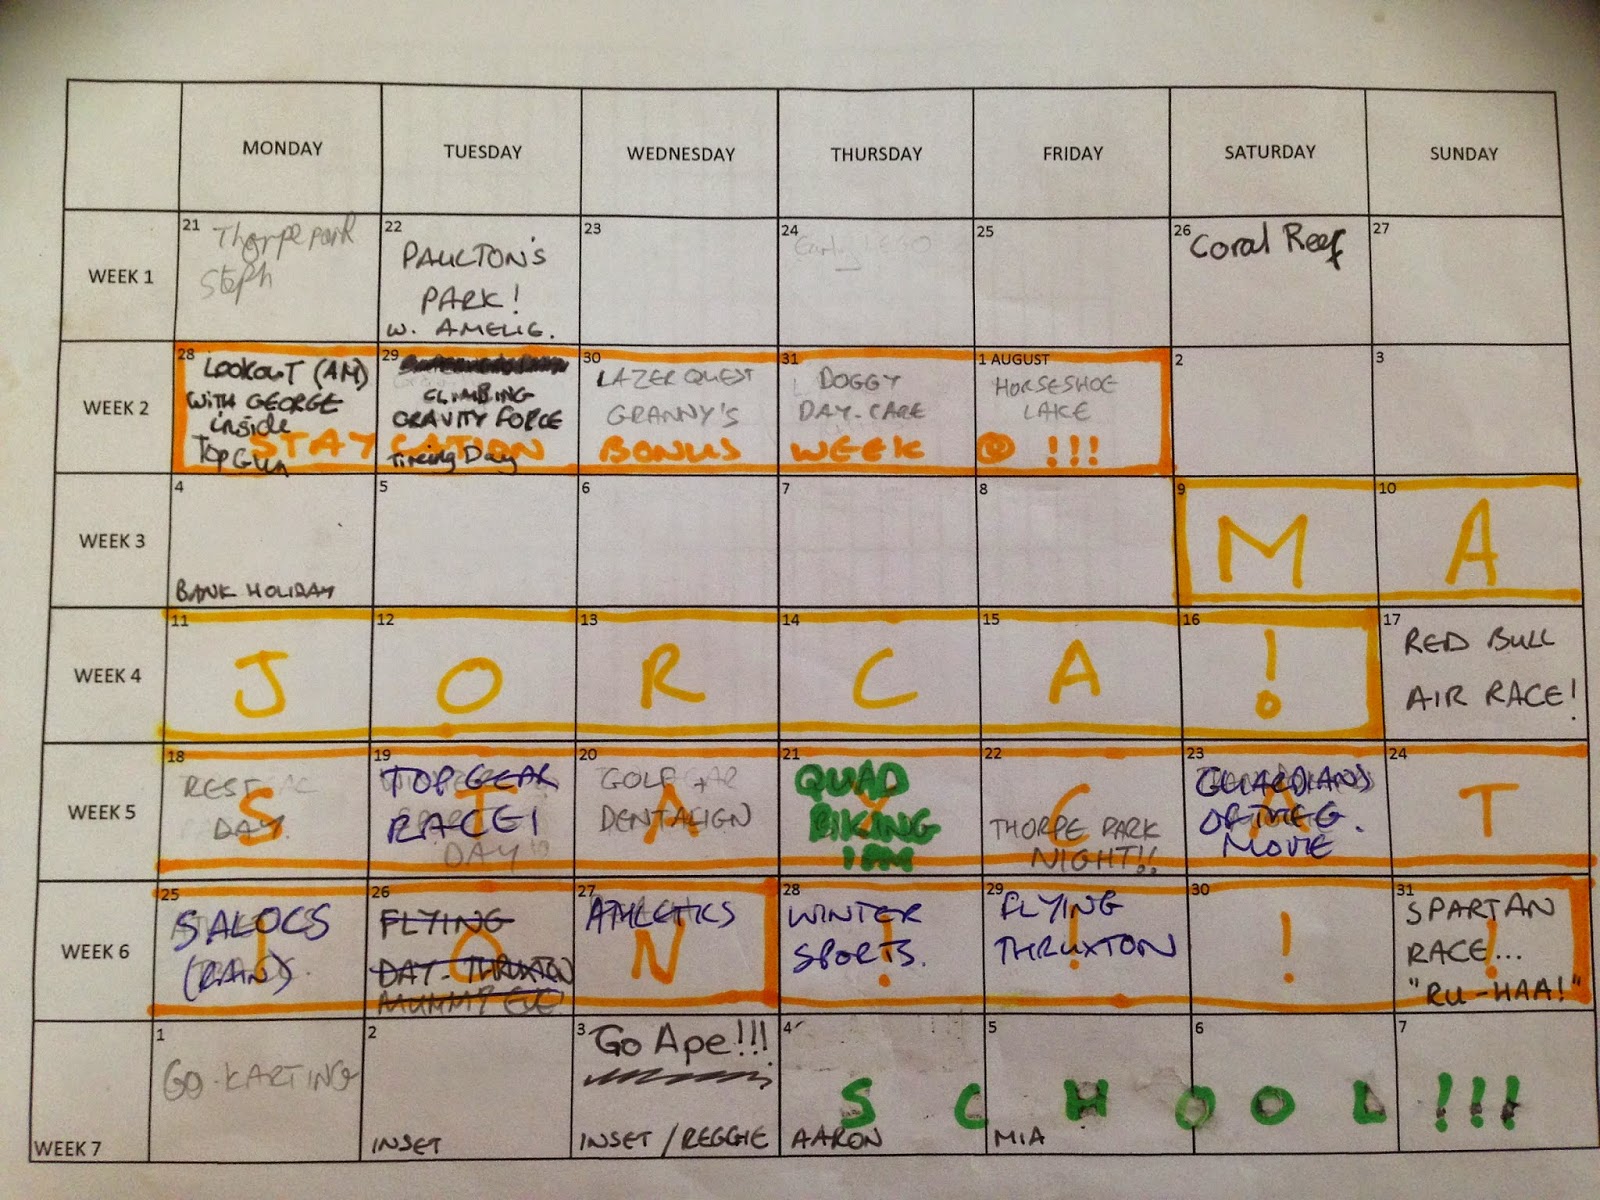 MONDAY TUESDAY WEDNESDAY THURSDAY FRIDAY SATURDAY SUNDAY
WEEK 1
21 Thorpe Park
Steph
22
PAULTON'S
PARK!
W. AMELIE.
23
24 LEGO
25
26 Coral Reef
27
WEEK 2
28
LOOKOUT (AM)
WITH GEORGE
inside
Top Gun
29
CLIMBING
GRAVITY FORCE
Tiring Day
30
LAZER QUEST
GRANNY'S
31
DOGGY
DAY-CARE
1 AUGUST
HORSESHOE
LAKE
STAYCATION BONUS WEEK !!!
2
3
WEEK 3
4
BANK HOLIDAY
5
6
7
8
9 M
10 A
WEEK 4
11 J
12 O
13 R
14 C
15 A
16 !
17
RED BULL
AIR RACE!
WEEK 5
18
REST
DAY.
S
19
TOP GEAR
RACE!
DAY
T
20
GOLF +
DENTALIGN
A
21
QUAD
BIKING
1PM
Y
22
C
THORPE PARK
NIGHT!!
23
GUARDIANS
OF THE G.
MOVIE
A
24 T
WEEK 6
25
SALOCS
(RAIN)
I
26
FLYING
DAY - THRUXTON
MUMMY EVE
O
27
ATHLETICS
N
28
WINTER
SPORTS.
!
29
FLYING
THRUXTON
!
30 !
31
SPARTAN
RACE...
"RU-HAA!"
!
WEEK 7
1
GO-KARTING
2
INSET
3
Go Ape!!!
INSET / REGGIE
4
AARON
5
MIA
6
7
SCHOOL!!!